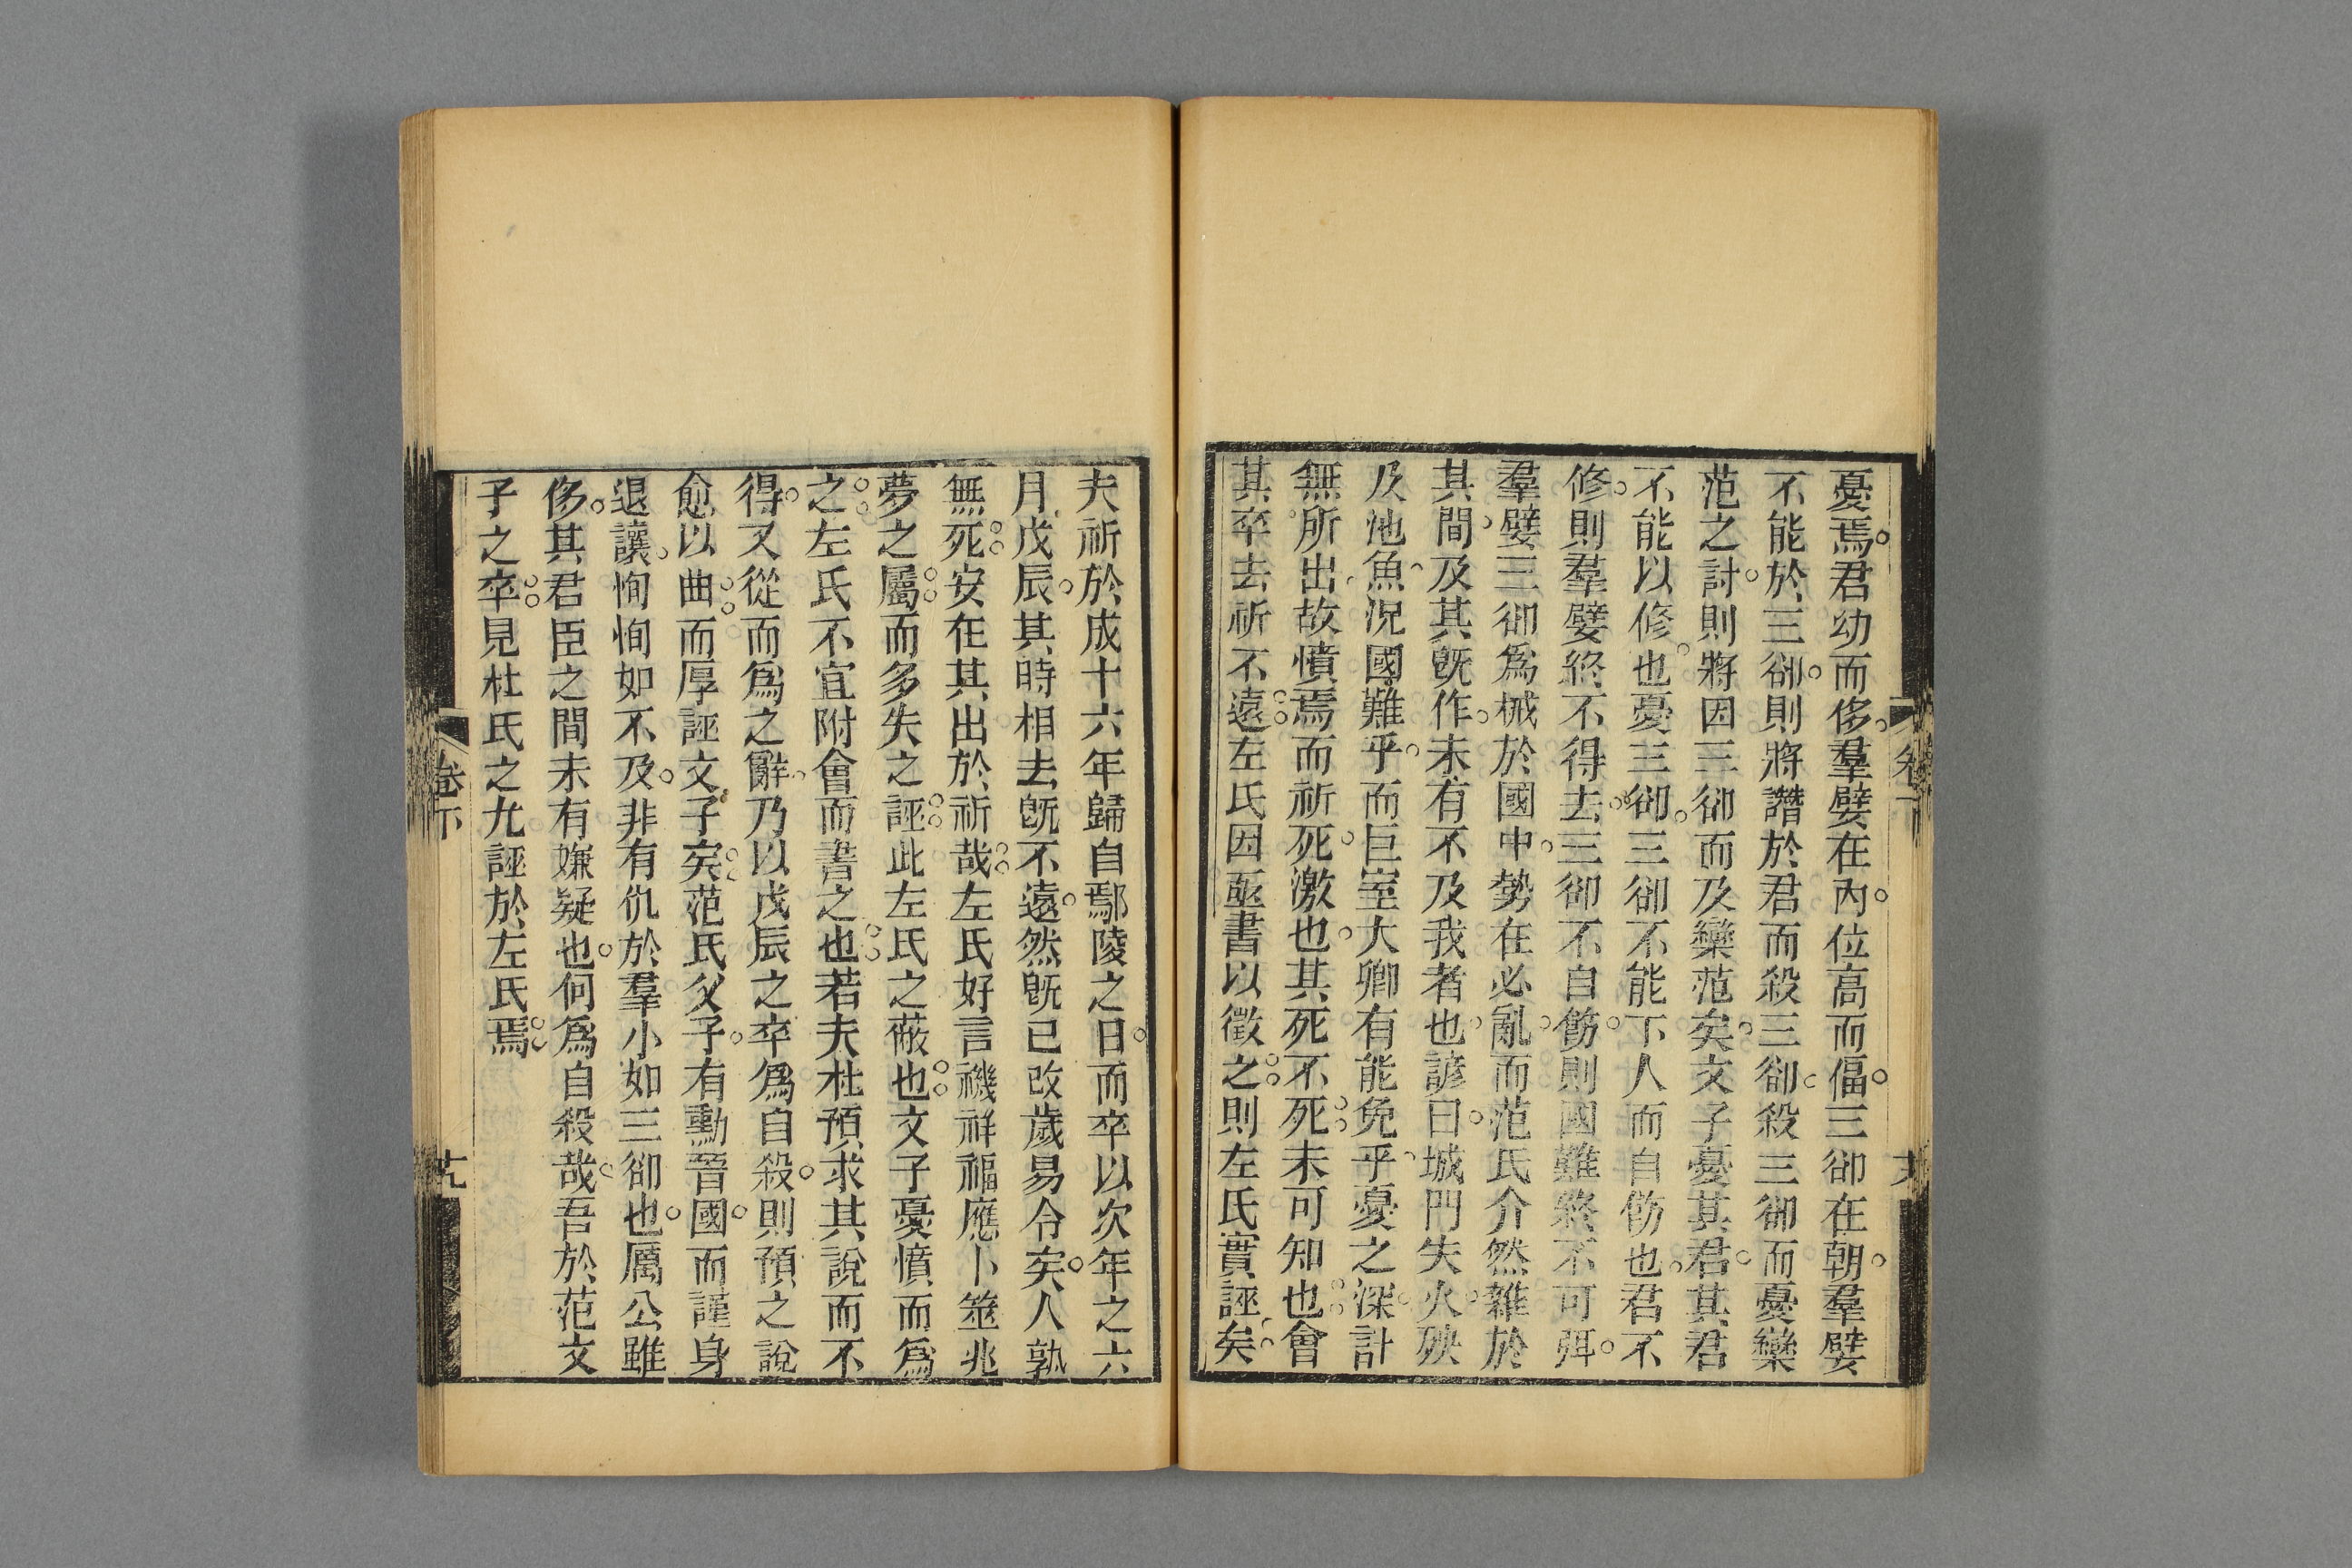 憂焉君幼而侈羣嬖在內位高而偪三郤在朝羣嬖
不能於三郤則將譖於君而殺三郤殺三郤而憂欒
范之討則將因三郤而及欒范矣文子憂其君其君
不能以修也憂三郤三郤不能下人而自飭也君不
修則羣嬖終不得去三郤不自飭則國難終不可弭
羣嬖三郤為械於國中勢在必亂而范氏介然雜於
其間及其旣作未有不及我者也諺曰城門失火殃
及池魚況國難乎而巨室大卿有能免乎憂之深計
無所出故憤焉而祈死激也其死不死未可知也會
其卒去祈不遠左氏因亟書以徵之則左氏實誣矣
卷下
夫祈於成十六年歸自鄢陵之日而卒以次年之六
月戊辰其時相去旣不遠然旣已改歲易令矣人孰
無死安在其出於祈哉左氏好言禨祥福應卜筮兆
夢之屬而多失之誣此左氏之蔽也文子憂憤而為
之左氏不宜附會而書之也若夫杜預求其說而不
得又從而為之辭乃以戊辰之卒為自殺則預之說
愈以曲而厚誣文子矣范氏父子有勳晉國而謹身
退讓恂恂如不及非有仇於羣小如三郤也厲公雖
侈其君臣之間未有嫌疑也何為自殺哉吾於范文
子之卒見杜氏之尤誣於左氏焉
卷下
十九